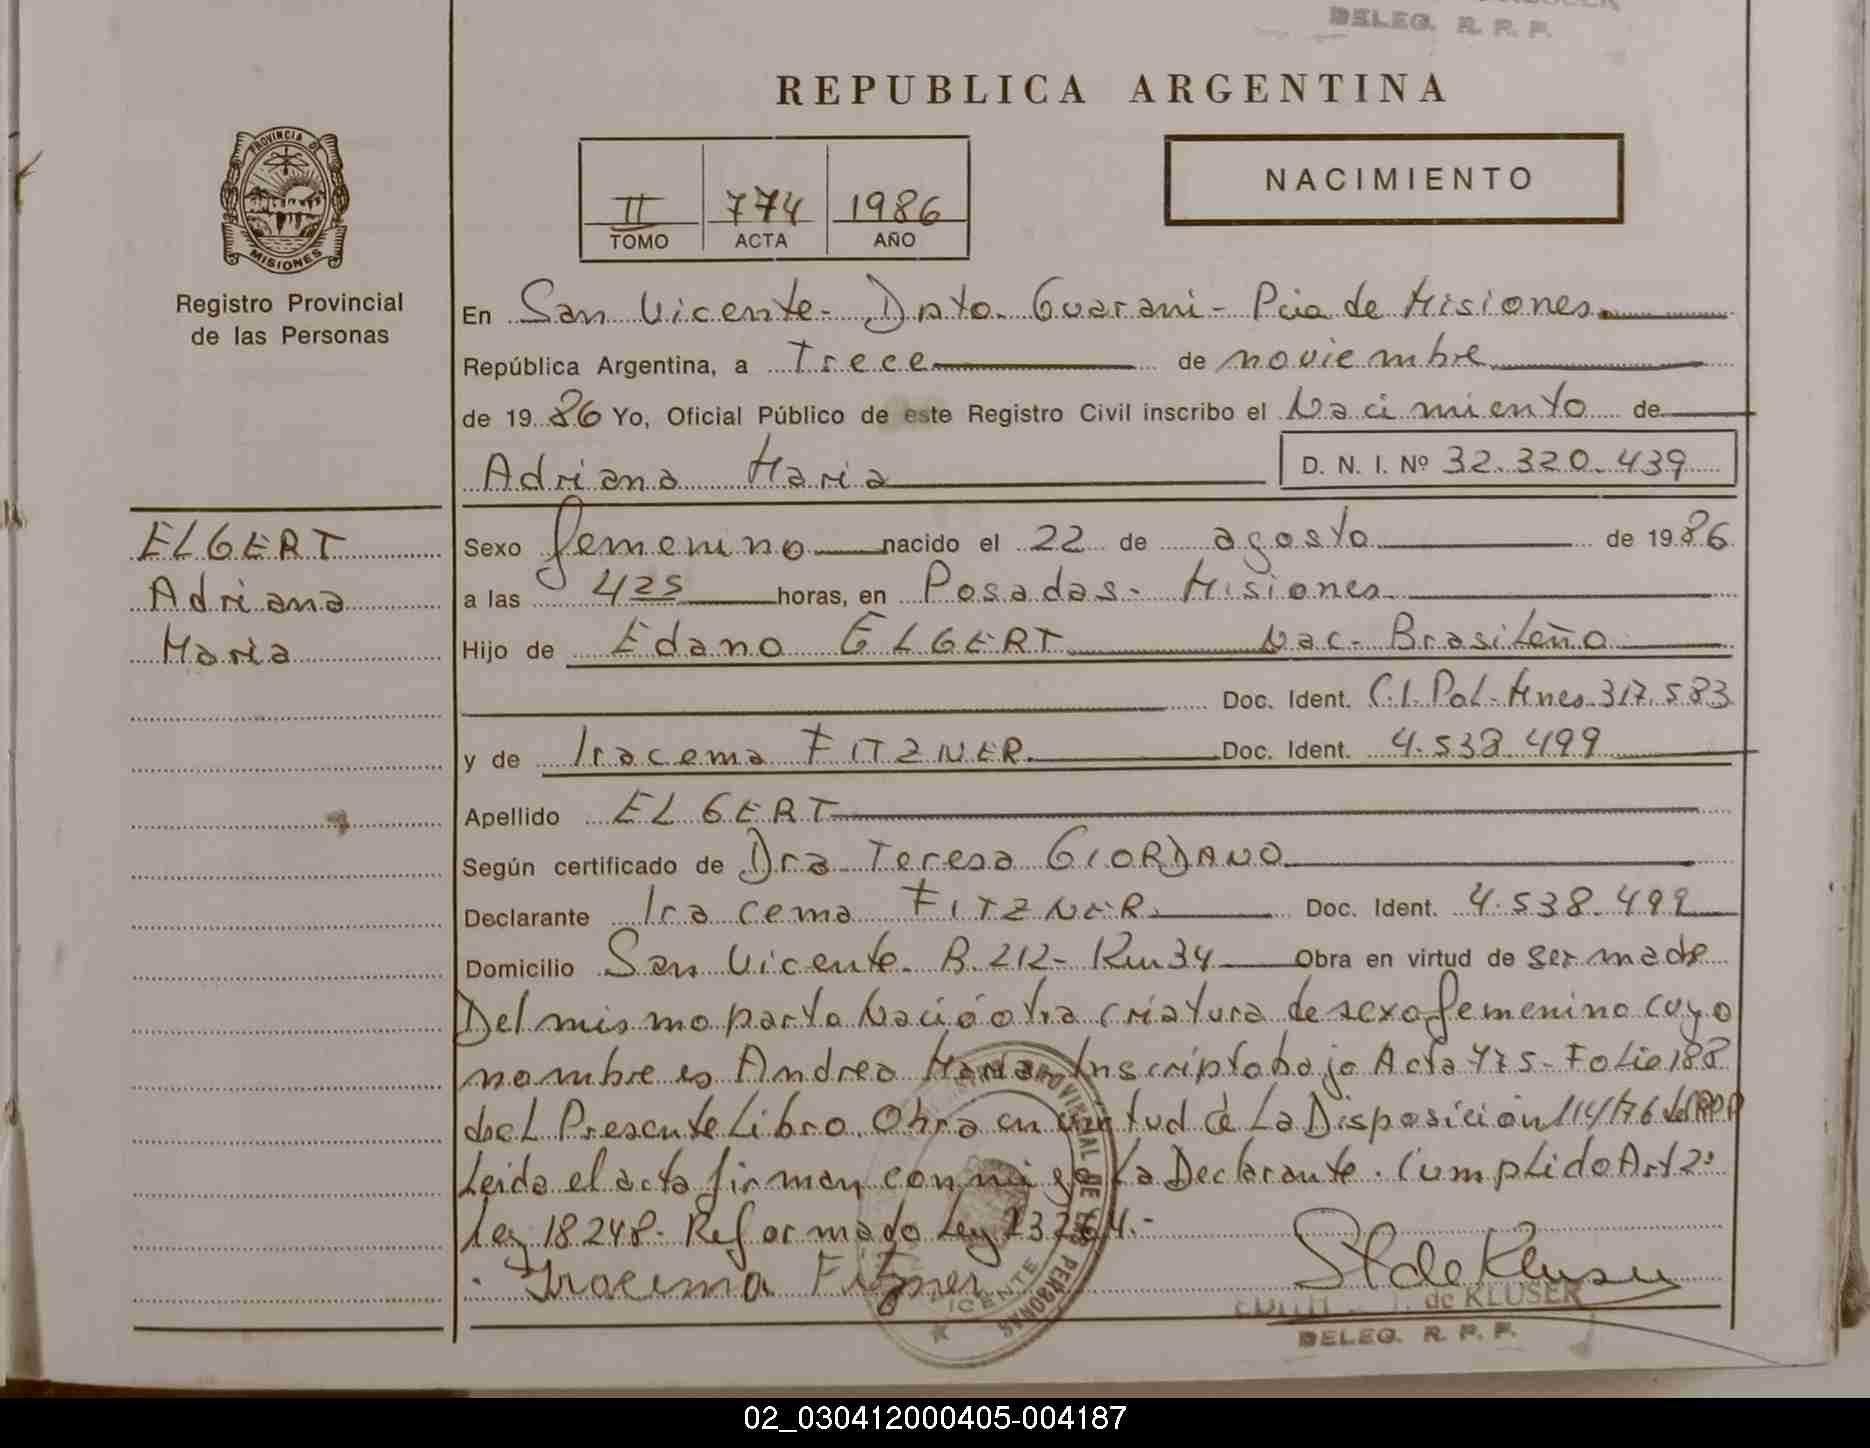 DELEG. R. P. P.
REPUBLICA ARGENTINA
PROVINCIA DE
MISIONES
II 774 1986
TOMO ACTA AÑO
NACIMIENTO
Registro Provincial
de las Personas
En San Vicente - Dpto. Guarani - Pcia de Misiones
República Argentina, a Trece de noviembre
de 1986 Yo, Oficial Público de este Registro Civil inscribo el Nacimiento de
Adriana Maria D. N. I. Nº 32.320.439
ELGERT
Adriana
Maria
Sexo femenino nacido el 22 de agosto de 1986
a las 425 horas, en Posadas - Misiones
Hijo de Edano ELGERT Nac - Brasileño
Doc. Ident. C.I. Pol - Mnes. 317.583
y de Iracema FITZNER Doc. Ident. 4.538.499
Apellido ELGERT
Según certificado de Dra Teresa GIORDANO
Declarante Iracema FITZNER Doc. Ident. 4.538.499
Domicilio San Vicente. B. 212 - Km 34 Obra en virtud de ser madre
Del mismo parto Nació otra criatura de sexo femenino cuyo
nombre es Andrea Maria Inscripto bajo Acta 775 - Folio 188
del Presente Libro. Obra en virtud de La Disposición 114/76 del RPP
Leida el acta firman conmigo La Declarante. Cumplido Art 2º
Ley 18248 - Reformado Ley 23264.-
Iracema Fitzner
de KLUSER
DELEG. R. P. P.
02_030412000405-004187